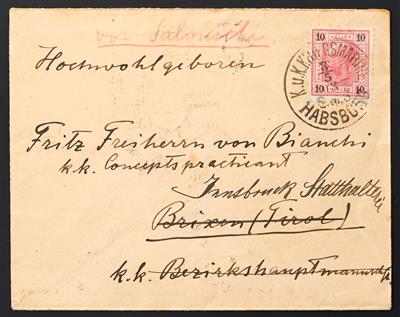 von Salmuschi
Hochwohlgeboren
10 10
10 10
K.u.K. KRIEGSMARINE
S.M.S.
HABSBURG
Fritz Freiherrn von Bianchi
k.k. Conceptspracticant
Innsbruck Statthalterei
Brixen (Tirol)
k.k. Bezirkshauptmannsch